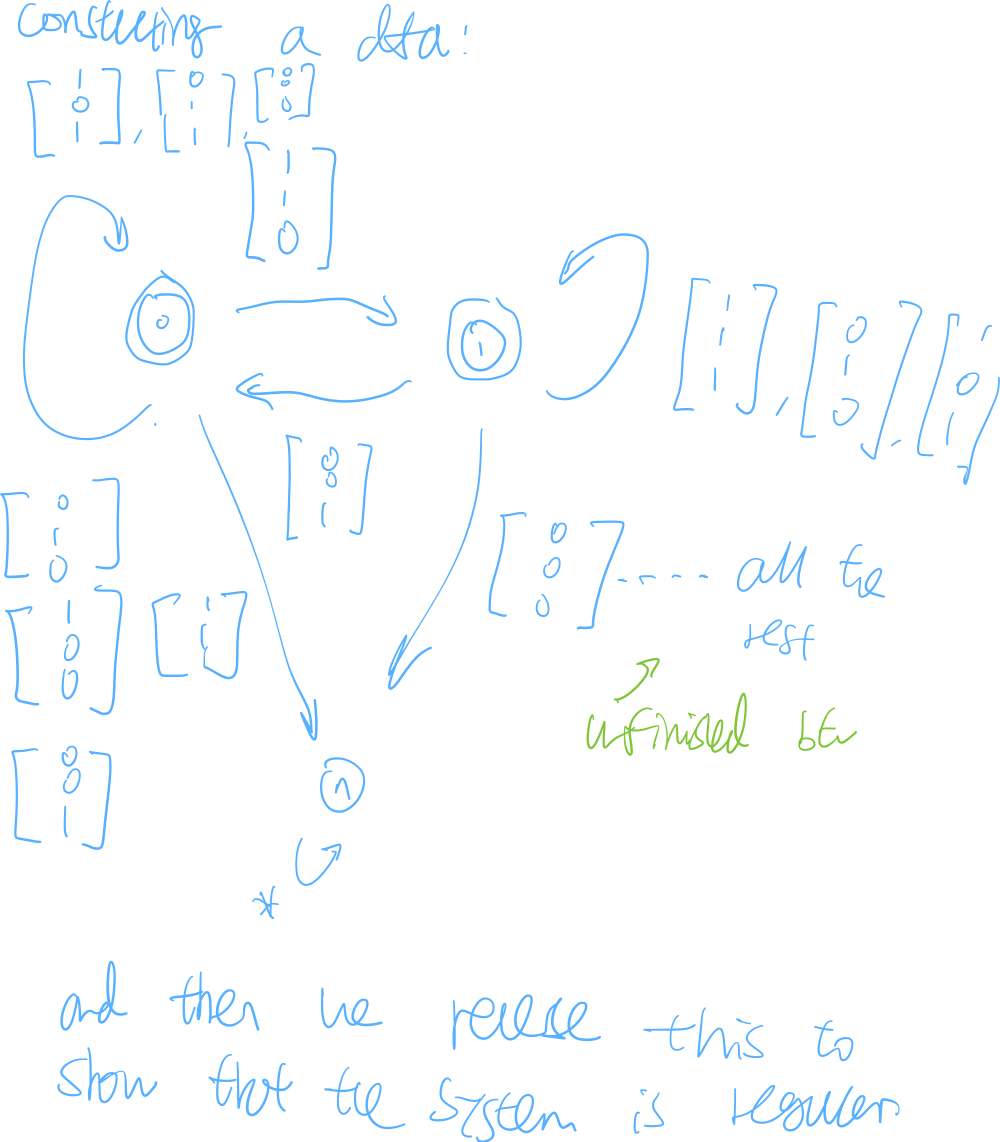 Constructing a dfa:
[1 0 1], [0 1 1], [0 0 0]
[1 1 0]
0 1
[1 1 1], [0 1 0], [1 0 1]
[0 0 1]
[0 1 0]
[0 0 0] ----- all the
rest
[1 0 0] [1 1 1]
unfinished btw
[0 0 1]
n
*
and then we reverse this to
show that the system is regular